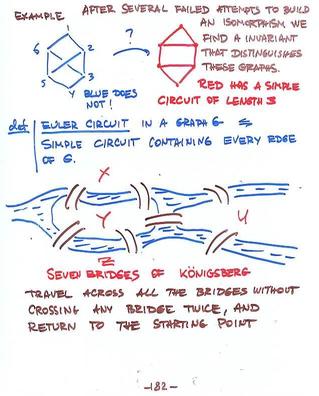 EXAMPLE
AFTER SEVERAL FAILED ATTEMPTS TO BUILD
AN ISOMORPHISM WE
FIND A INVARIANT
THAT DISTINGUISHES
THESE GRAPHS.
1
6
2
5
3
4
?
BLUE DOES
NOT!
RED HAS A SIMPLE
CIRCUIT OF LENGTH 3
def
EULER CIRCUIT IN A GRAPH G
SIMPLE CIRCUIT CONTAINING EVERY EDGE
OF G.
X
Y
U
Z
SEVEN BRIDGES OF KÖNIGSBERG
TRAVEL ACROSS ALL THE BRIDGES WITHOUT
CROSSING ANY BRIDGE TWICE, AND
RETURN TO THE STARTING POINT
-182-